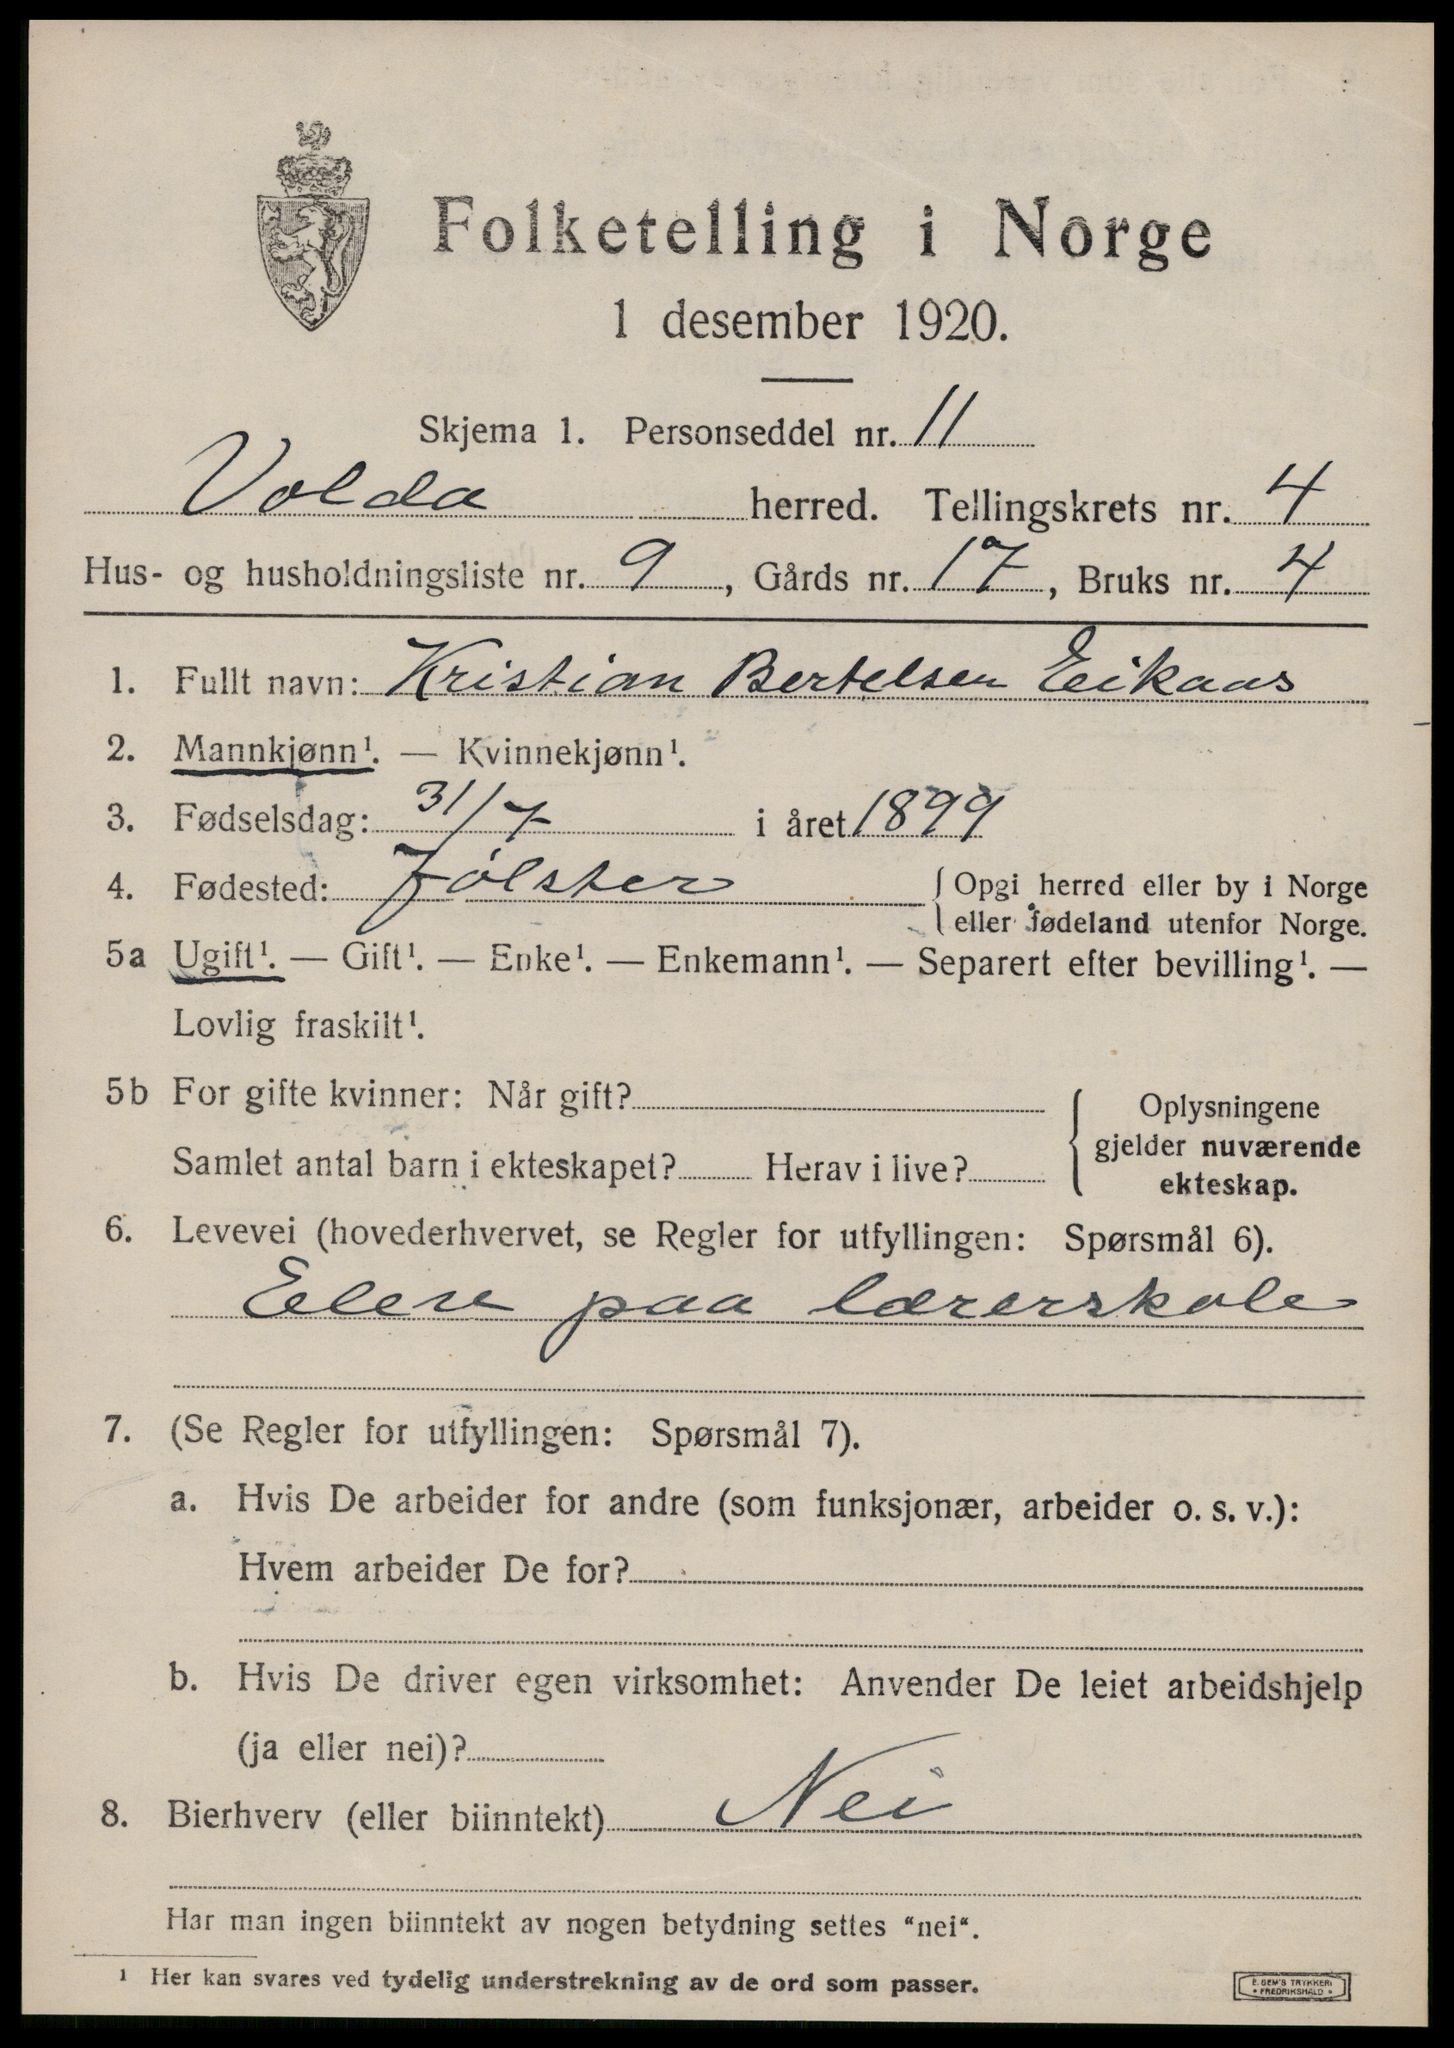 Folketelling i Norge
1 desember 1920.
Skjema 1. Personseddel nr. 11
Volda herred. Tellingskrets nr. 4
Hus- og husholdningsliste nr. 9, Gårds nr. 17, Bruks nr. 4
1. Fullt navn: Kristian Bertelsen Eikaas
2. Mannkjønn¹. — Kvinnekjønn¹.
3. Fødselsdag: 31/7 i året 1899
4. Fødested: Jølster { Opgi herred eller by i Norge
eller fødeland utenfor Norge.
5a Ugift¹. — Gift¹. — Enke¹. — Enkemann¹. — Separert efter bevilling¹. —
Lovlig fraskilt¹.
5b For gifte kvinner: Når gift?
Samlet antal barn i ekteskapet? Herav i live?
Oplysningene
gjelder nuværende
ekteskap.
6. Levevei (hovederhvervet, se Regler for utfyllingen: Spørsmål 6).
Eleve paa lærerskole
7. (Se Regler for utfyllingen: Spørsmål 7).
a. Hvis De arbeider for andre (som funksjonær, arbeider o. s. v.):
Hvem arbeider De for?
b. Hvis De driver egen virksomhet: Anvender De leiet arbeidshjelp
(ja eller nei)?
8. Bierhverv (eller biinntekt) Nei
Har man ingen biinntekt av nogen betydning settes "nei".
¹ Her kan svares ved tydelig understrekning av de ord som passer.
E. SEM'S TRYKKERI
• FREDRIKSHALD •